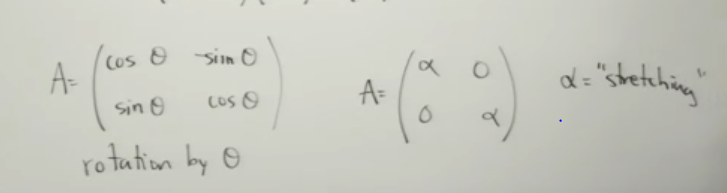 A= (cos θ -sin θ
sin θ cos θ)
rotation by θ
A= (α 0
0 α)
α = "stretching"